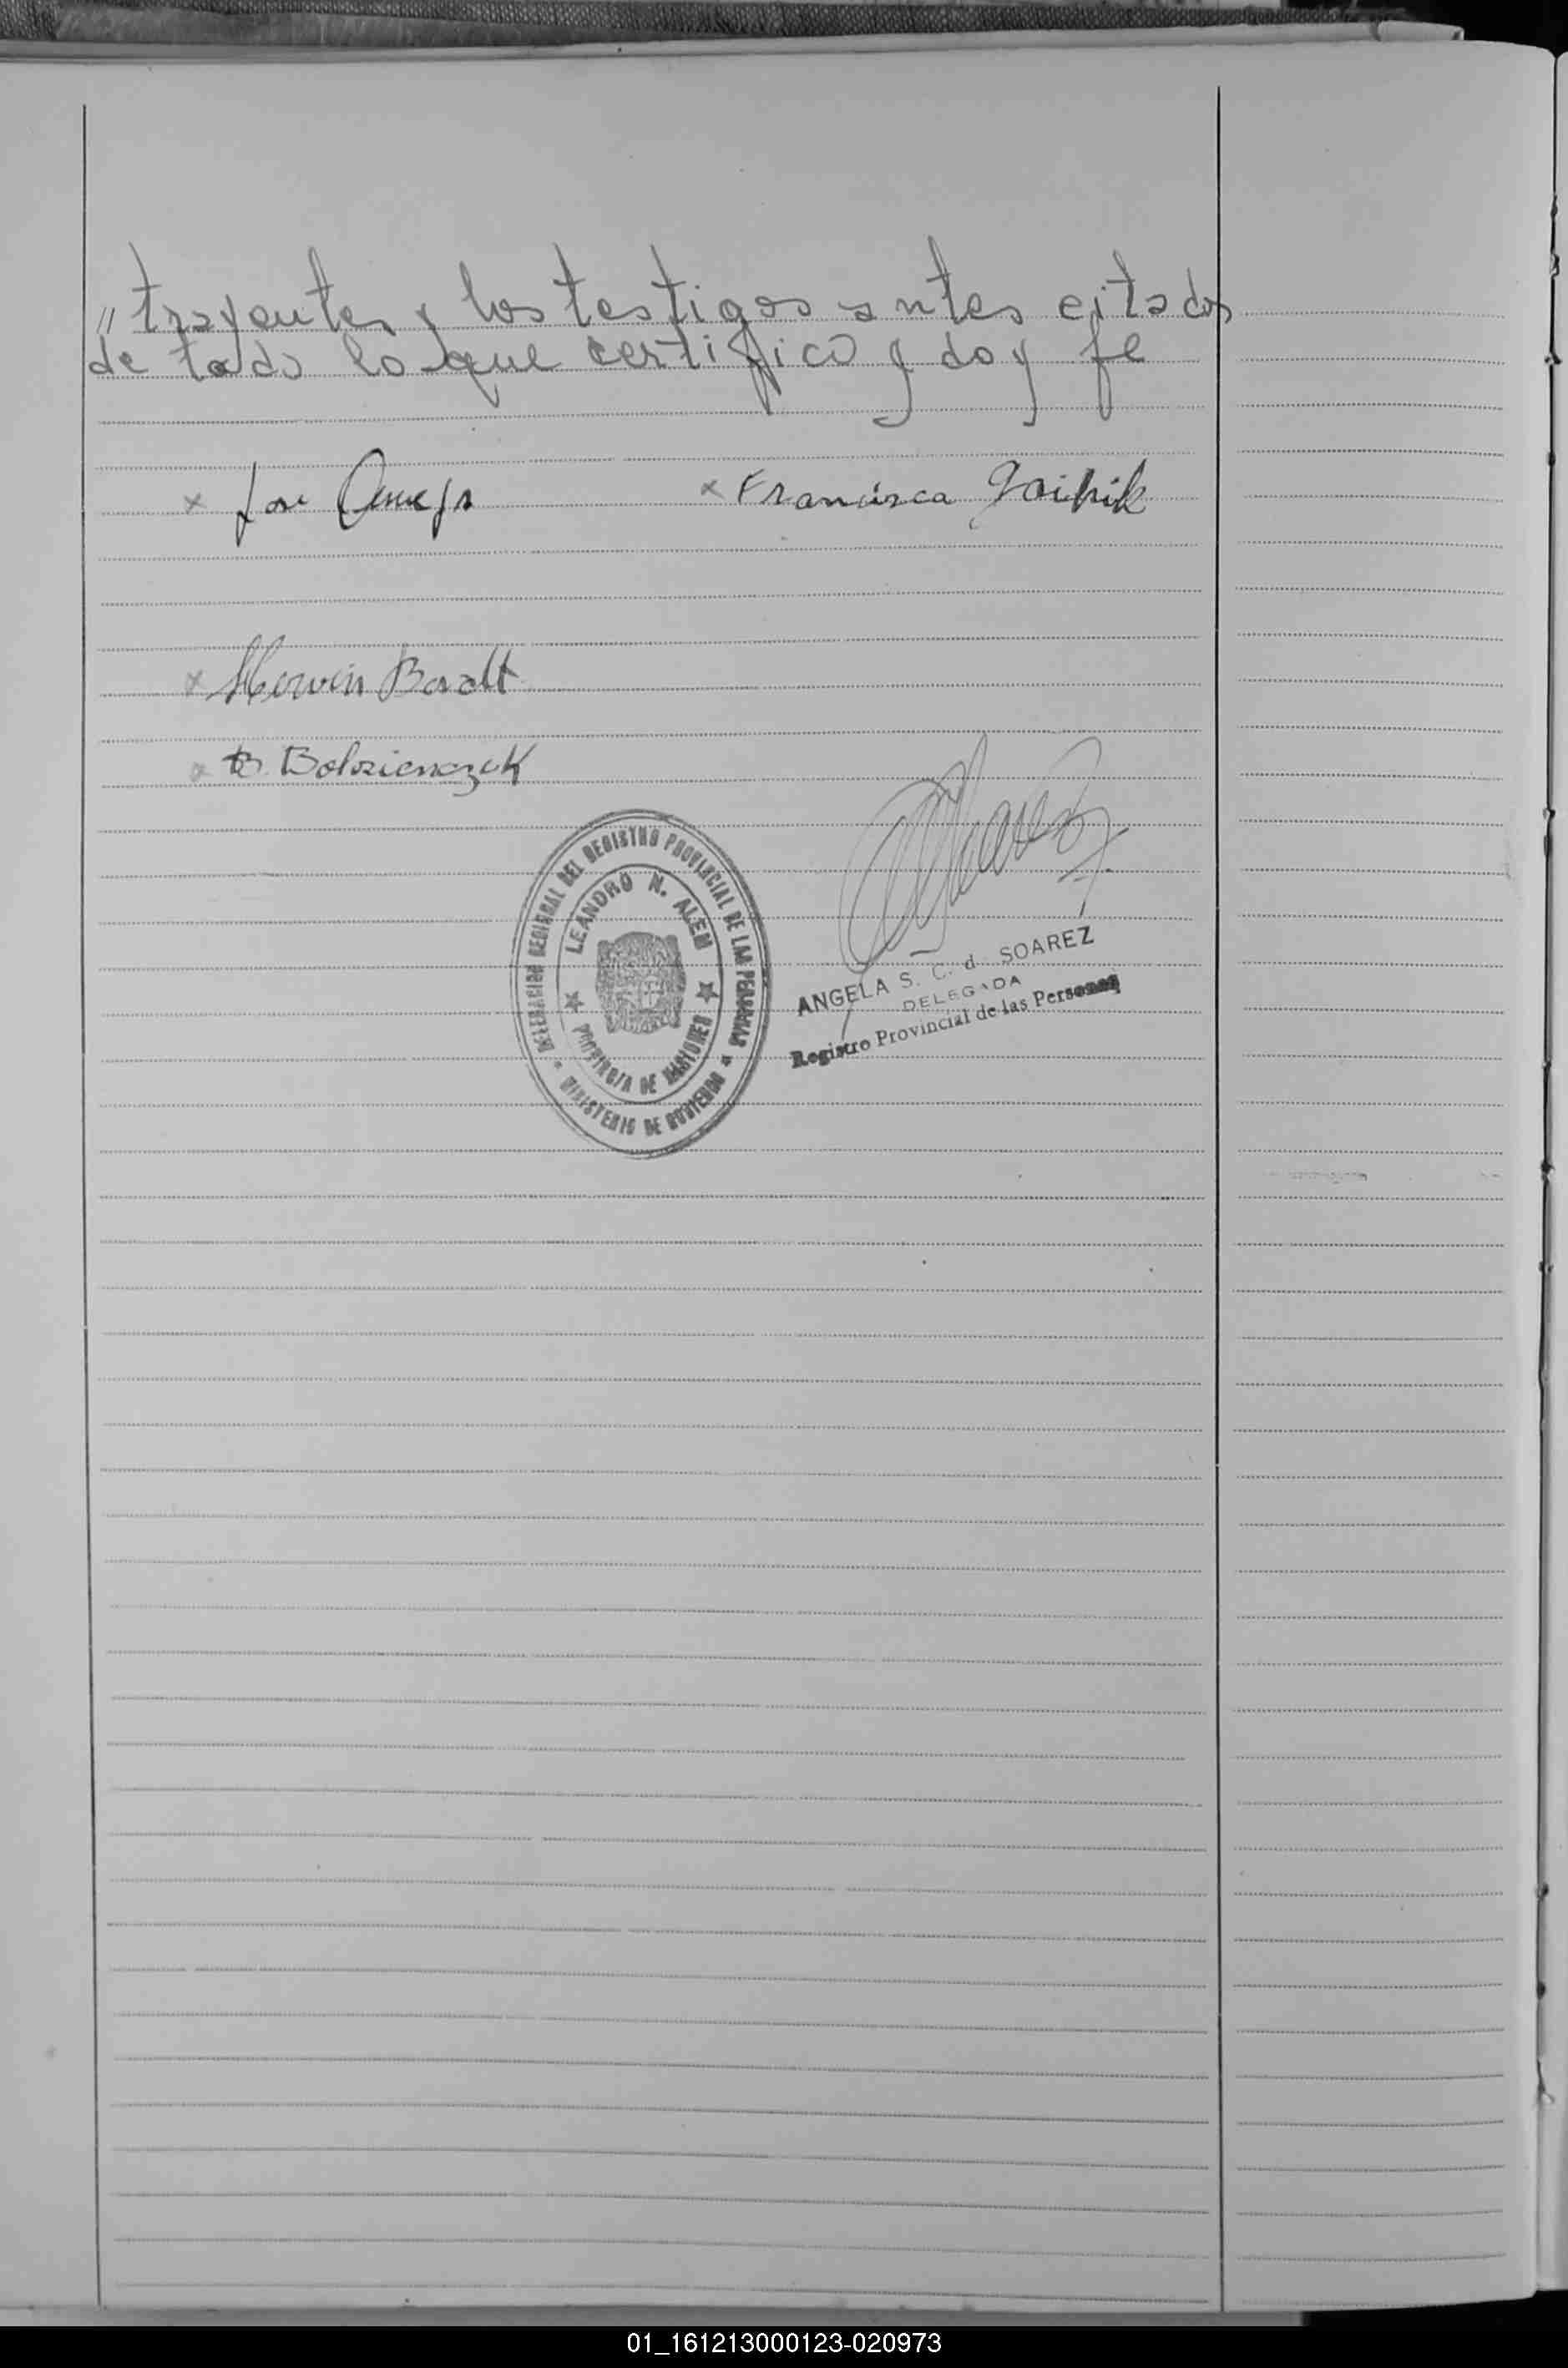 "trayentes y los testigos antes citados
de todo lo que certifico y doy fe
x x Francisca
x Boralt
DELEGACION REGIONAL DEL REGISTRO PROVINCIAL DE LAS PERSONAS
LEANDRO N. ALEM
PROVINCIA DE MISIONES
MINISTERIO DE GOBIERNO
ANGELA S. C. d. SOAREZ
DELEGADA
Registro Provincial de las Personas
01_161213000123-020973